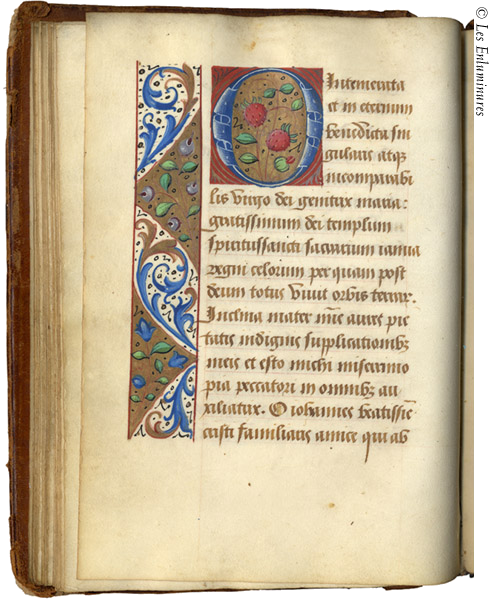 O Intemerata
et in eternum
benedicta sin
gularis atq3
incomparabi
lis virgo dei genitrix maria:
gratissimum dei templum
spiritussancti sacrarium ianua
regni celorum per quam post
deum totus vivit orbis terrar.
Inclina mater mie aures pie
tatis indignis supplicationib3
meis et esto michi miserrimo
pia peccatori in omnib3 au
xiliatrix. O iohannes beatissie
cristi familiaris amice qui ab
© Les Enluminures